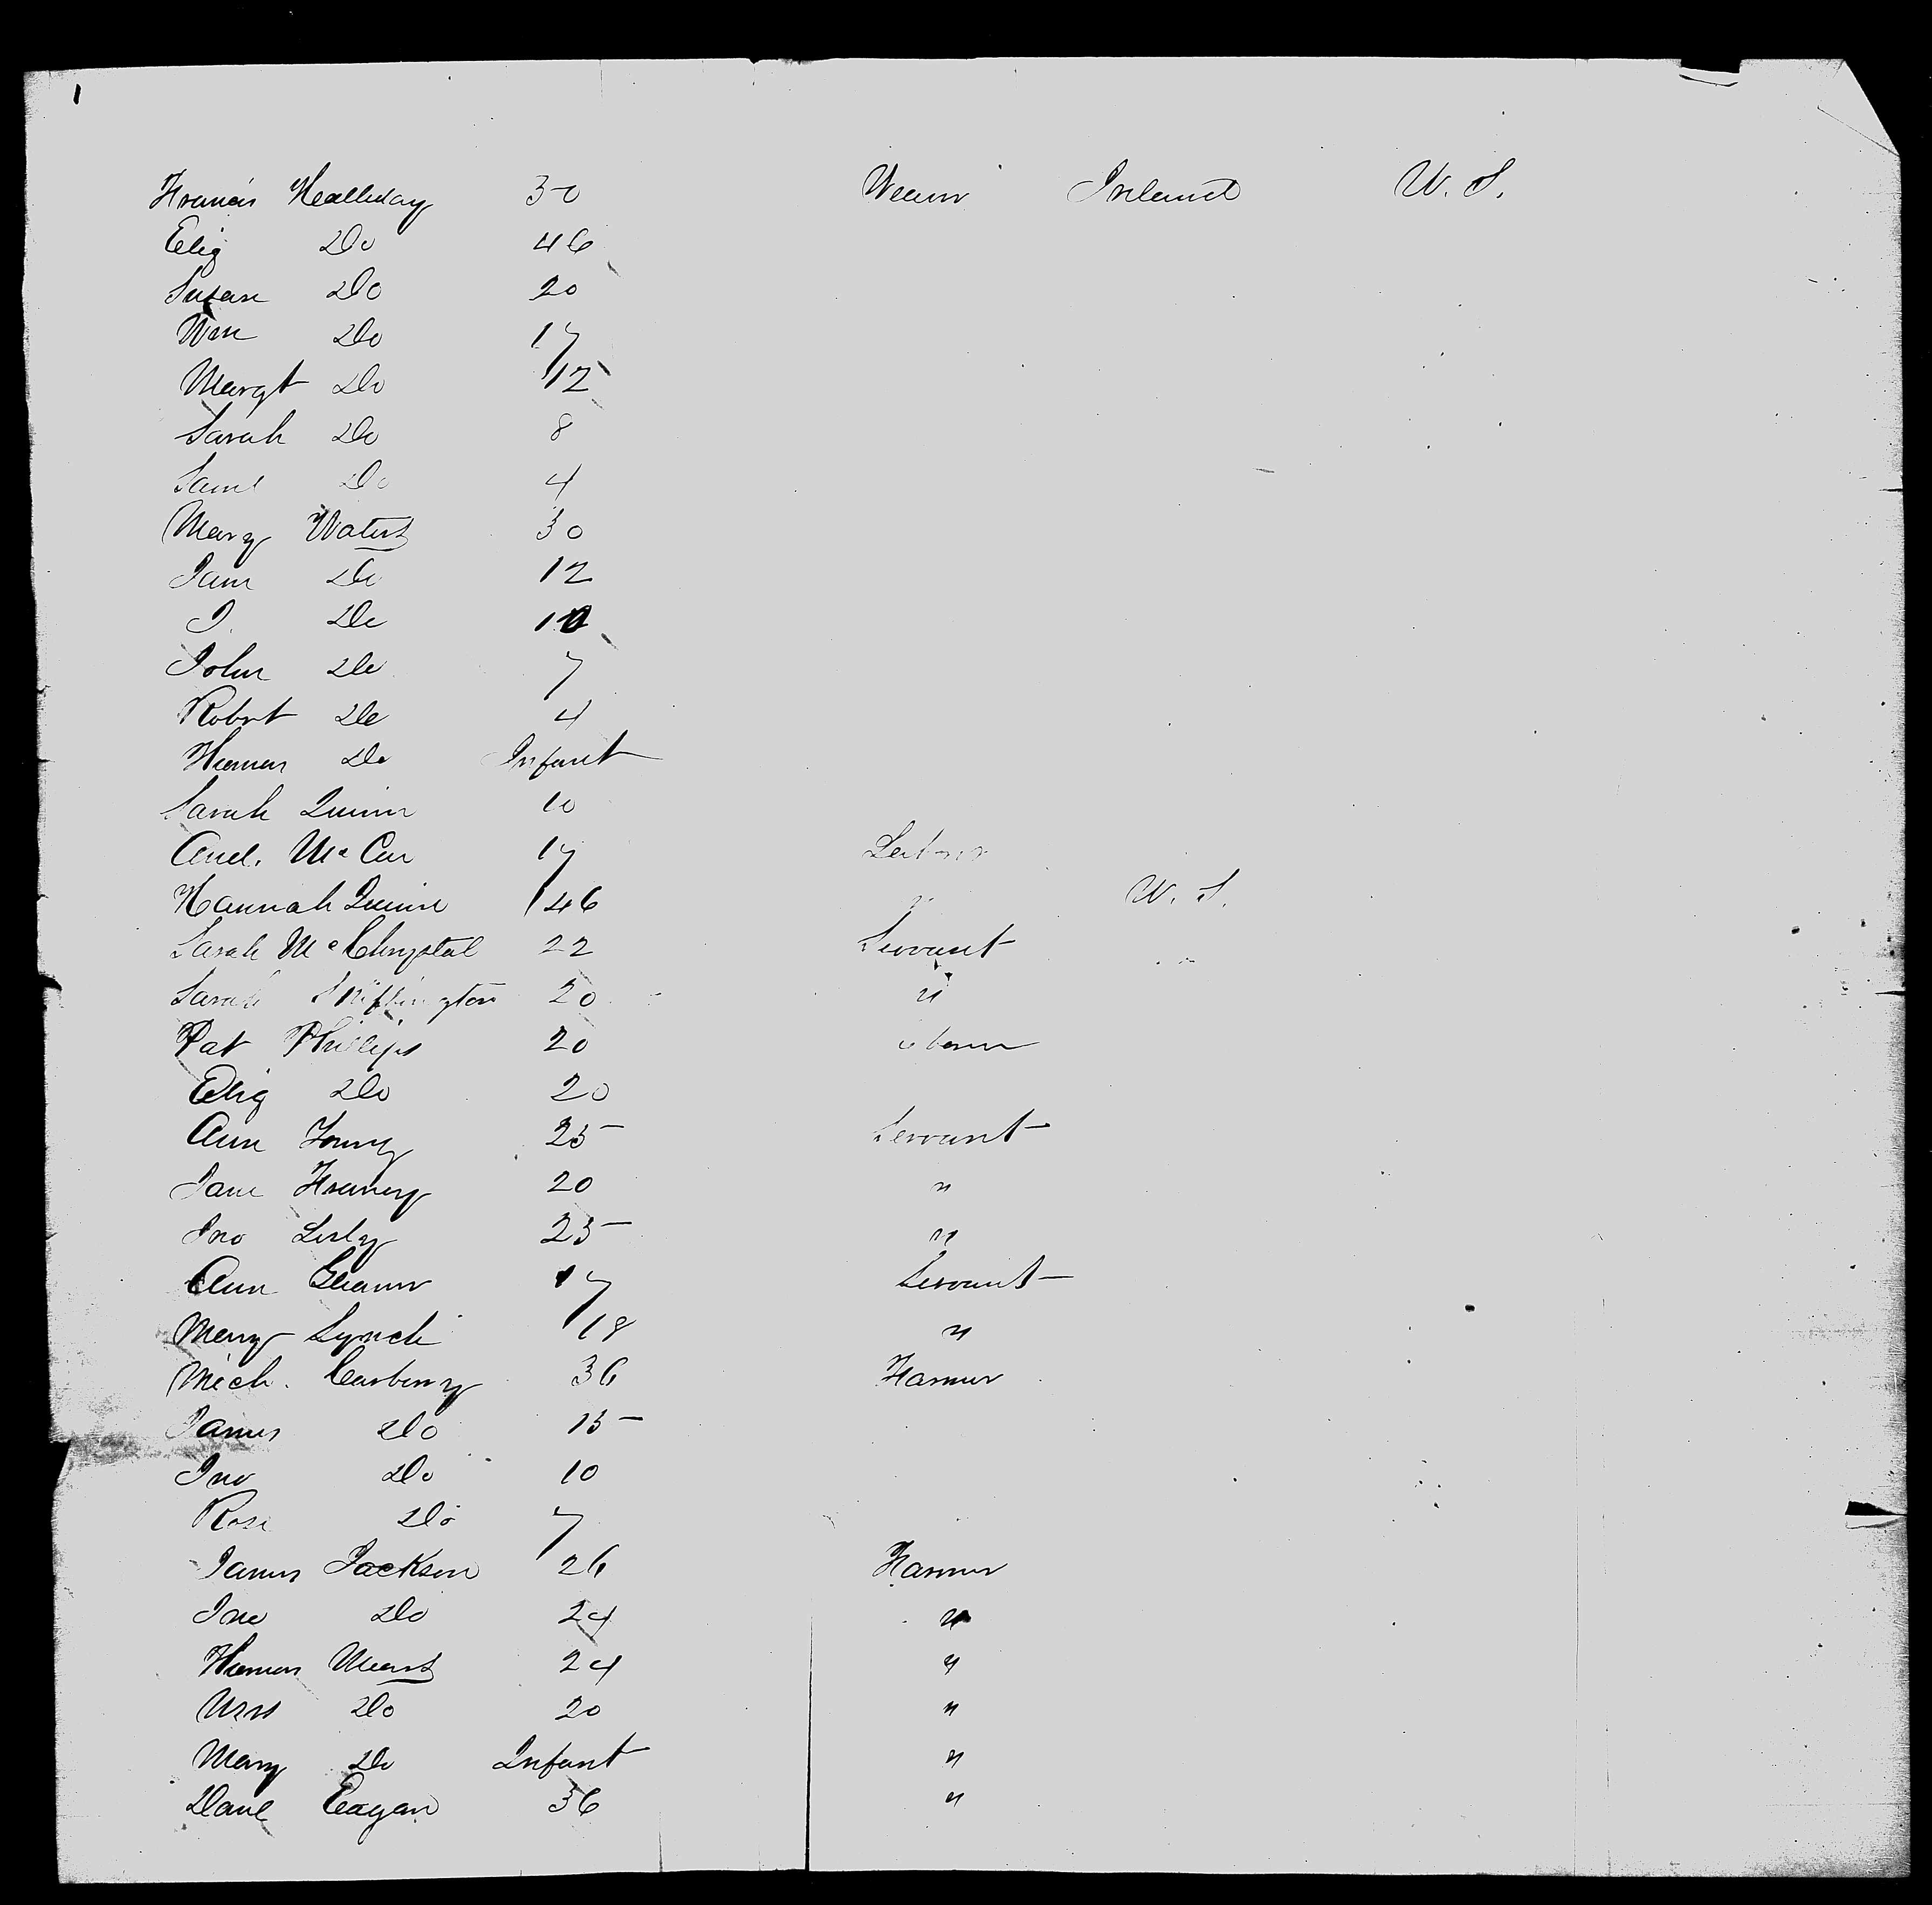 Francis Halliday 30 Weaver Ireland U. S.
Eliz Do 46
Susan Do 20
Wm Do 17
Margt Do 12
Sarah Do 8
Saml Do 4
Mary Waters 30
Jane Do 12
J. Do 10
John Do 7
Robert Do 4
Thomas Do Infant
Sarah Quinn 10
And. McCur 17 Labourer
Hannah Quinn 46 " U. S.
Sarah McChrystal 22 Servant
Sarah 20 "
Pat Phillips 20
Eliz Do 20
Ann Young 25 Servant
Jane 20 "
Jno 25 "
Ann 17 Servant
Mary Lynch 18 "
Mich. Carberry 36 Farmer
James Do 15
Jno Do 10
Rose Do 7
James Jackson 26 Farmer
Jno Do 24 "
Thomas Mears 24 "
Mrs Do 20 "
Mary Do Infant "
Danl Eagan 36 "